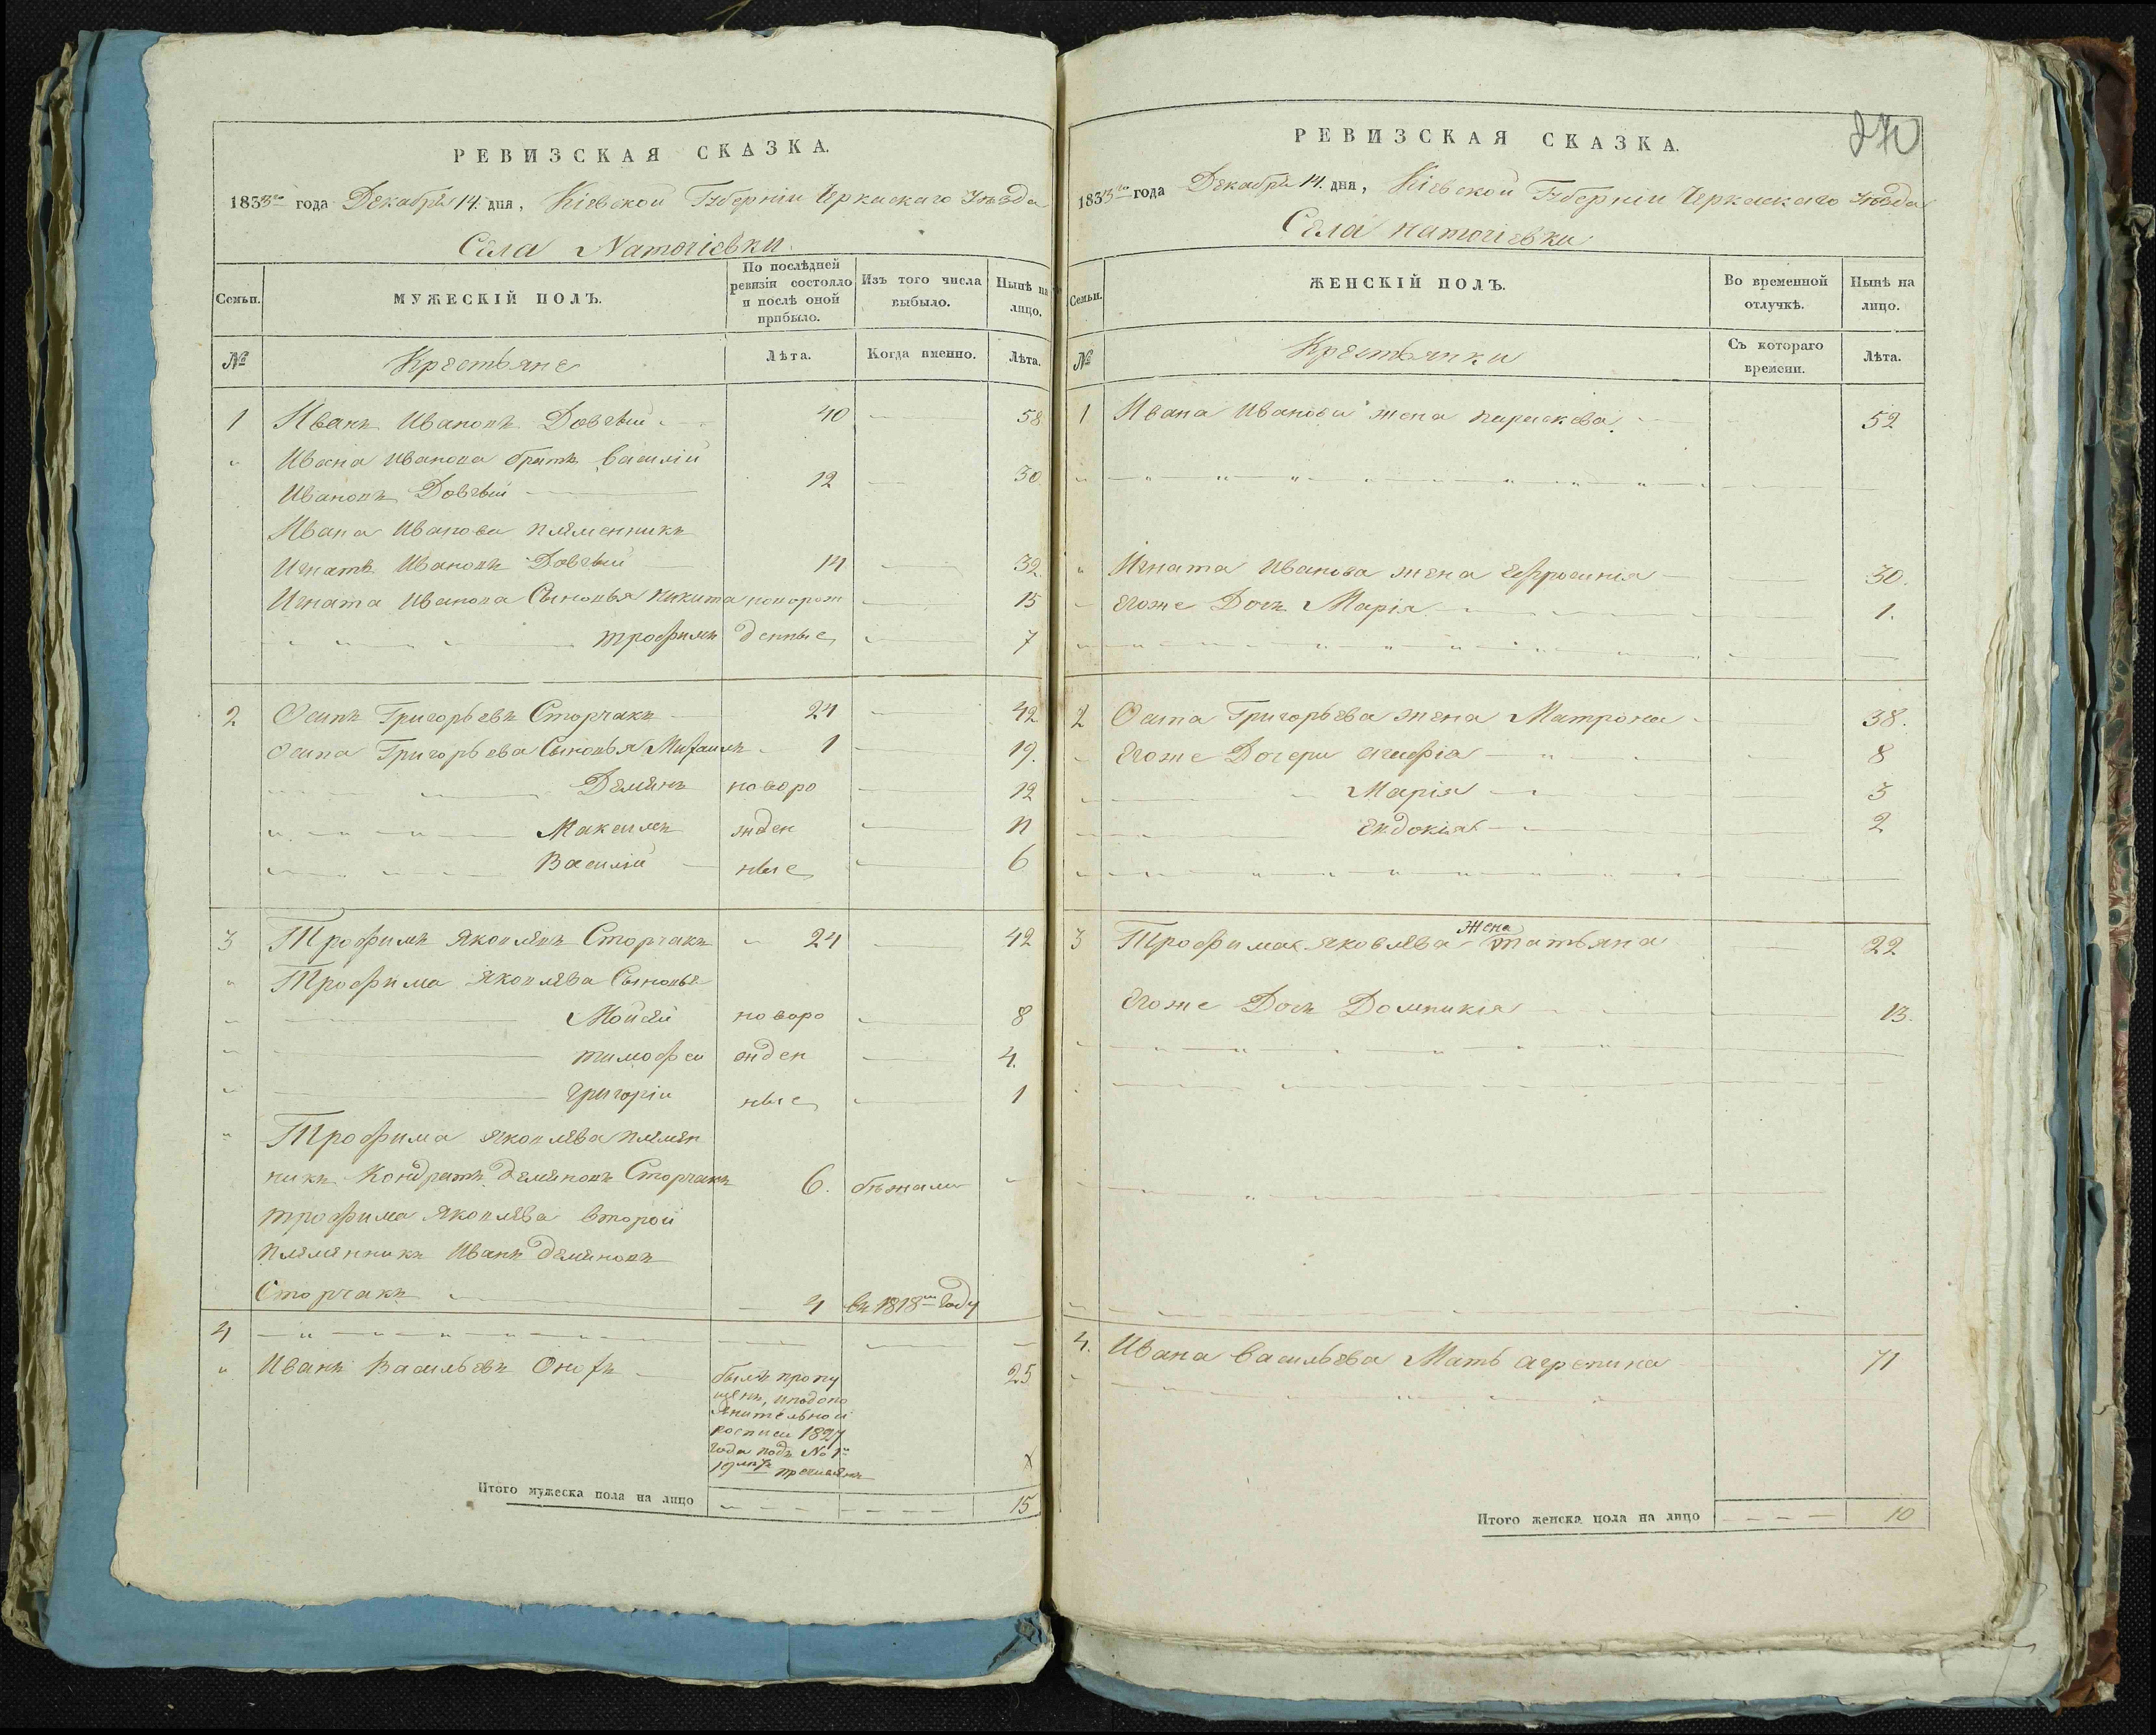 РЕВИЗСКАЯ СКАЗКА.
1833го года Декабря 14. дня, Кіевской Губерніи Черкаскаго Уѣзда
Села
Семьи.
МУЖЕСКІЙ ПОЛЪ.
По послѣдней ревизіи состояло и послѣ оной прибыло.
Изъ того числа выбыло.
Нынѣ на лицо.
№
Крестьяне
Лѣта.
Когда именно.
Лѣта.
1 Иванъ Ивановъ Довгый 40 58
Ивана Иванова братъ Василій
Ивановъ Довгый 12 30
Ивана Иванова племенникъ
Игнатъ Ивановъ Довгый 14 32
Игната Иванова Сыновья Никита новорож 15
трофимъ денные 7
2 Осипъ Григорьевъ Сторчакъ 24 42
Осипа Григорьева Сыновья Михаилъ 1 19.
Демянъ новоро 12
Максимъ жден
Василій ные 6
3 Трофимъ Яковлевъ Сторчакъ 24 42
Трофима Яковлева Сыновья
Мойсей новоро 8
тимофей жден 4.
григорій ные 1
Трофима Яковлева племен
никъ Кондратъ демяновъ Сторчакъ 6. бѣжали
трофима Яковлева второй
племенникъ Иванъ демяновъ
Сторчакъ 4 въ 1818м году
4
Иванъ Васильевъ 25
былъ пропу
щенъ,
росписи 1827
года подъ №
Итого мужеска пола на лицо 15
РЕВИЗСКАЯ СКАЗКА.
1833го года Декабря 14. дня, Кіевской Губерніи Черкаскаго Уѣзда
Села
Семьи.
ЖЕНСКІЙ ПОЛЪ.
Во временной отлучкѣ.
Нынѣ на лицо.
№
Крестьянки
Съ котораго времени.
Лѣта.
1 Ивана Иванова жена параскева 52
Игната Иванова жена Ефросинія 30.
Егоже Дочь Марія 1.
2 Осипа Григорьева жена Матрона 38.
Егоже Дочери агафія 8
Марія 3
Евдокія 2
3 Трофима Яковлева жена татьяна 22
Егоже Дочь Домникія 13.
4. Ивана васильева Мать агрепина 71
Итого женска пола на лицо 10